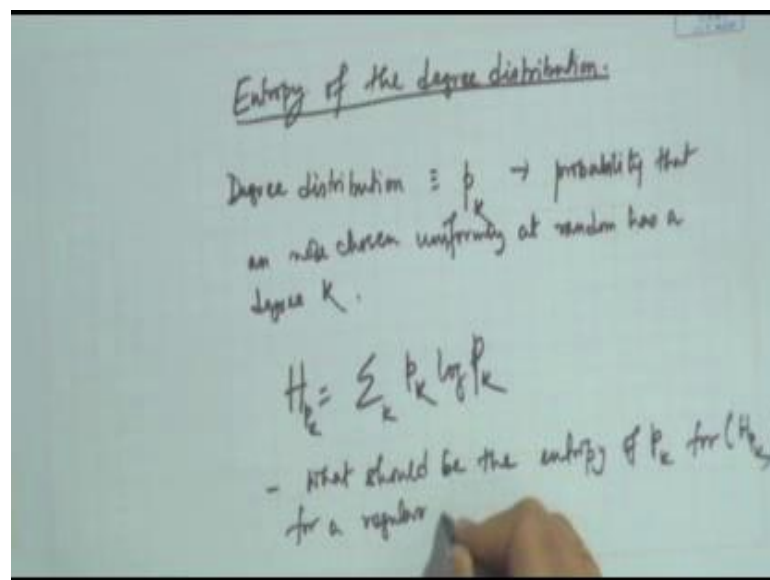 Entropy of the degree distribution.
Degree distribution ≡ p_k → probability that
an node chosen uniformly at random has a
degree k.
H_{p_k} = Σ_k p_k log p_k
- What should be the entropy of p_k for (H_{p_k})
for a regular